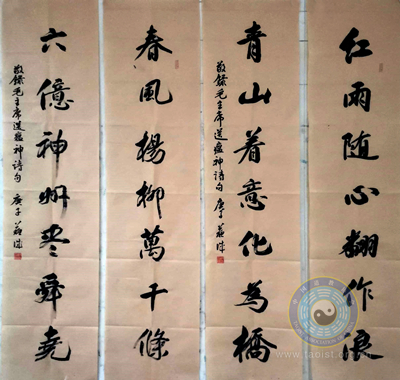 红雨随心翻作浪
青山着意化為橋
敬錄毛主席送瘟神诗句 庚子
春風楊柳萬千條
六億神州尽舜堯
敬錄毛主席送瘟神诗句 庚子
www.taoist.org.cn